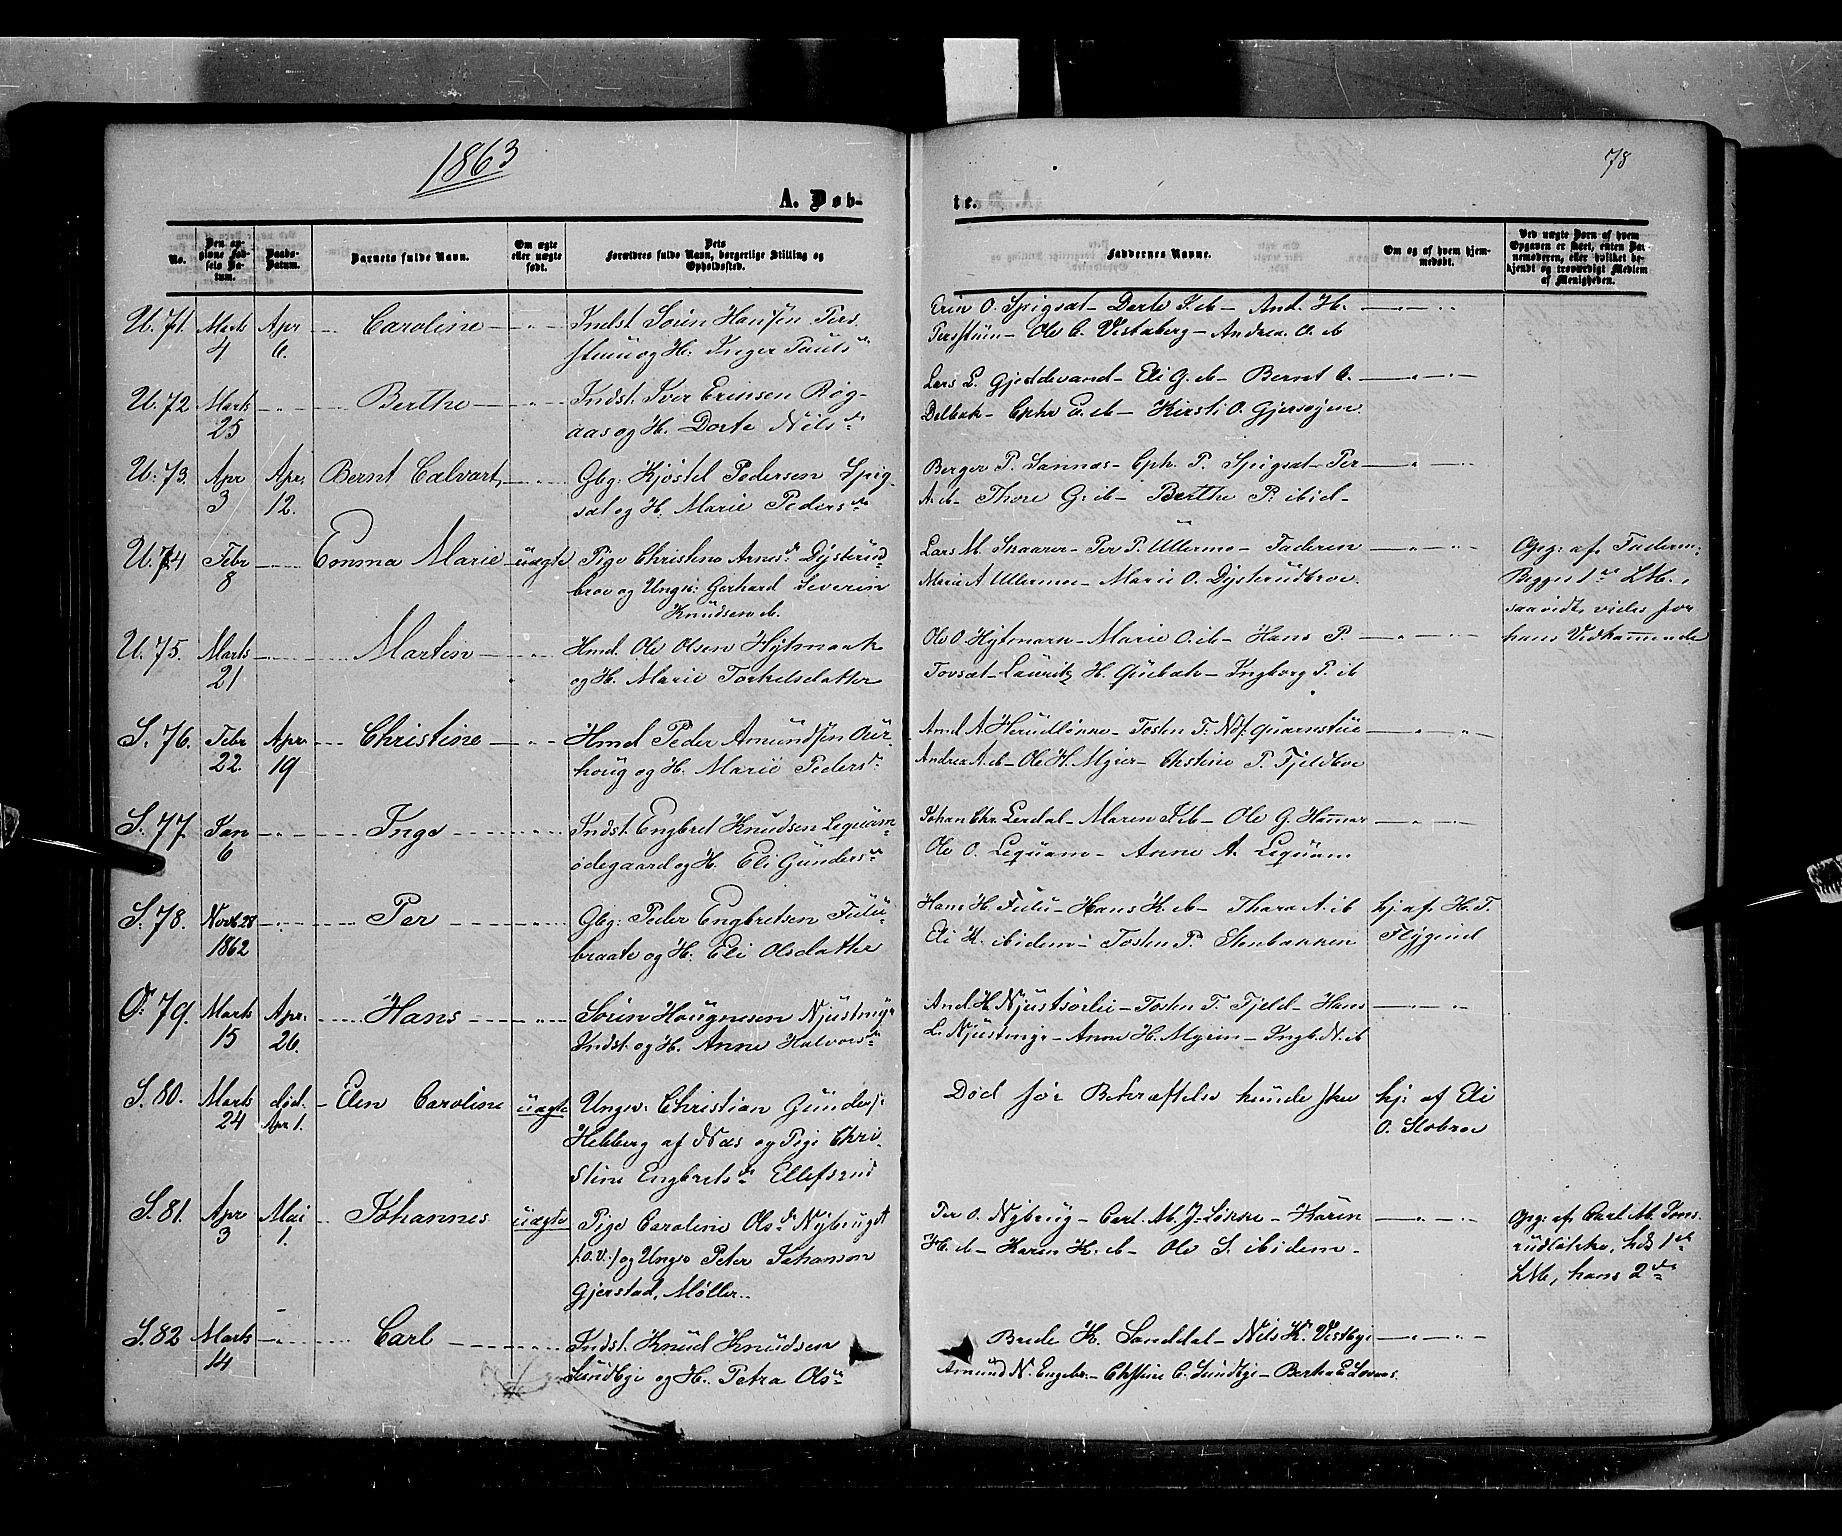 1863
78
A. Døb-
te.
No.
Den angivne Fødsels Datum.
Daabs-Datum.
Barnets fulde Navn.
Om ægte eller uægte født.
Dets Forældres fulde Navn, borgerlige Stilling og Opholdssted.
Faddernes Navne.
Om og af hvem hjemmedøbt.
Ved uægte Børn af hvem Opgaven er skeet, enten Barnemoderen, eller hvilket bekjendt og troværdigt Medlem af Menigheden.
U. 71. Marts 4 Apr 6. Caroline
Indst Søren Hansen Pers
stuen og H. Inger Pauls dr
Spigsæt - Dorte - And. H.
Persstuen - Ole C. Vestaberg - Andrea O. ib
U. 72 Marts 25 Berthe
Indst. Iver Erensen Røg
aas og H. Dorte Nils dr
Lars L. Gjeddevand - Eli G. ib - Bernt C.
Delbæk - Kirsti O. Gjersøyen
U. 73. Apr 3 Apr. 12. Bernt
Gbg. Kjøstel Pedersen Spig
sæt og H. Marie Peders dr
Berger P. Sannæs - Cph. P. Spigsæt - Per
A. ib - Thore G. ib - Berthe P. ibid -
U. 74 Febr 8 Emma Marie uægte
Pige Christine Arnes dr Dysterud
broe og Ungk: Gerhard Severin
Knudsen ib.
Lars M. Skaarer - Per P. Ullermo - Faderen
Marie A Ullermo - Marie O. Dysterudbroe.
Opg: af Faderen;
Begges 1ste LM.,
saavidt vides for
hans Vedkommende
U. 75. Marts 21 Martin
Hmd. Ole Olsen Hytmaak
og H. Marie Torkelsdatter
Ole O. Hytmarn - Marie O. ib - Hans P.
Tovsæt - Lauritz H. - Ingborg P. ib
S. 76. Febr 22. Apr 19 Christine
Hmd Peder Amundsen Aur
houg og H. Marie Peders dr
Amd A - Tosten T. Quarnstue
Andrea A. ib - Ole H. Myrer - Chstine P. Fjeldboe
S. 77. Jan 6 Inge
Indst. Engbret Knudsen Lequam
ødegaard og H. Eli Gunders dr
Johan Chr. Lerdal - Maren J. ib - Ole G. Hamar
Ole O. Lequam - Anne A. Lequam
S. 78. Novb 28 1862 Per
Gbg: Peder Engbretsen Fulu
braate og H. Eli Olsdatter
Hans H. Fulu - Hans K. ib - Thora A. ib
Eli K. ibidem - Tosten P. Stenbakken
hj. af H. T.
Flygind
Ø. 79. Marts 15 Apr. 26. Hans
Søren Haugnesen Njustmyr
Indst. og H. Anne Halvors dr
And. H. Njustsørlie - Tosten T. Fjeld - Hans
L. Njustmyr - Anne H. Myren - Ingb. N. ib
S. 80. Marts 24 død. Apr 1. Elen Caroline uægte
Ungk: Christian Gunders.
Hebberg af Næs og Pige Chri-
stine Engbrets dr Ellefsrud
Død før Bekræftelse kunde skee
hj: af Eli
O. Slobroe
S. 81. Apr 3 Mai 1. Johannes uægte
Pige Caroline Ols dr Nybruget
/: O. V. :/ og Ungk Peter Johanson
Gjerstad, Møller.
Per O. Nybrug - Carl. M. J-Løkke - Karen
H. ib - Karen K. ib - Ole S. ibidem -
Opg: af Carl M. Jons
rudløkke, hds 1ste
LM, hans 2de
S. 82 Marts 14 Carl
Indst. Knud Knudsen
Sundbye og H. Petra Ols dr
Brede H. Sanddal - Nils K. Vestbye
Amund N. Engebr. - Chstine C. Sundbye - Berthe E Lovnæs.